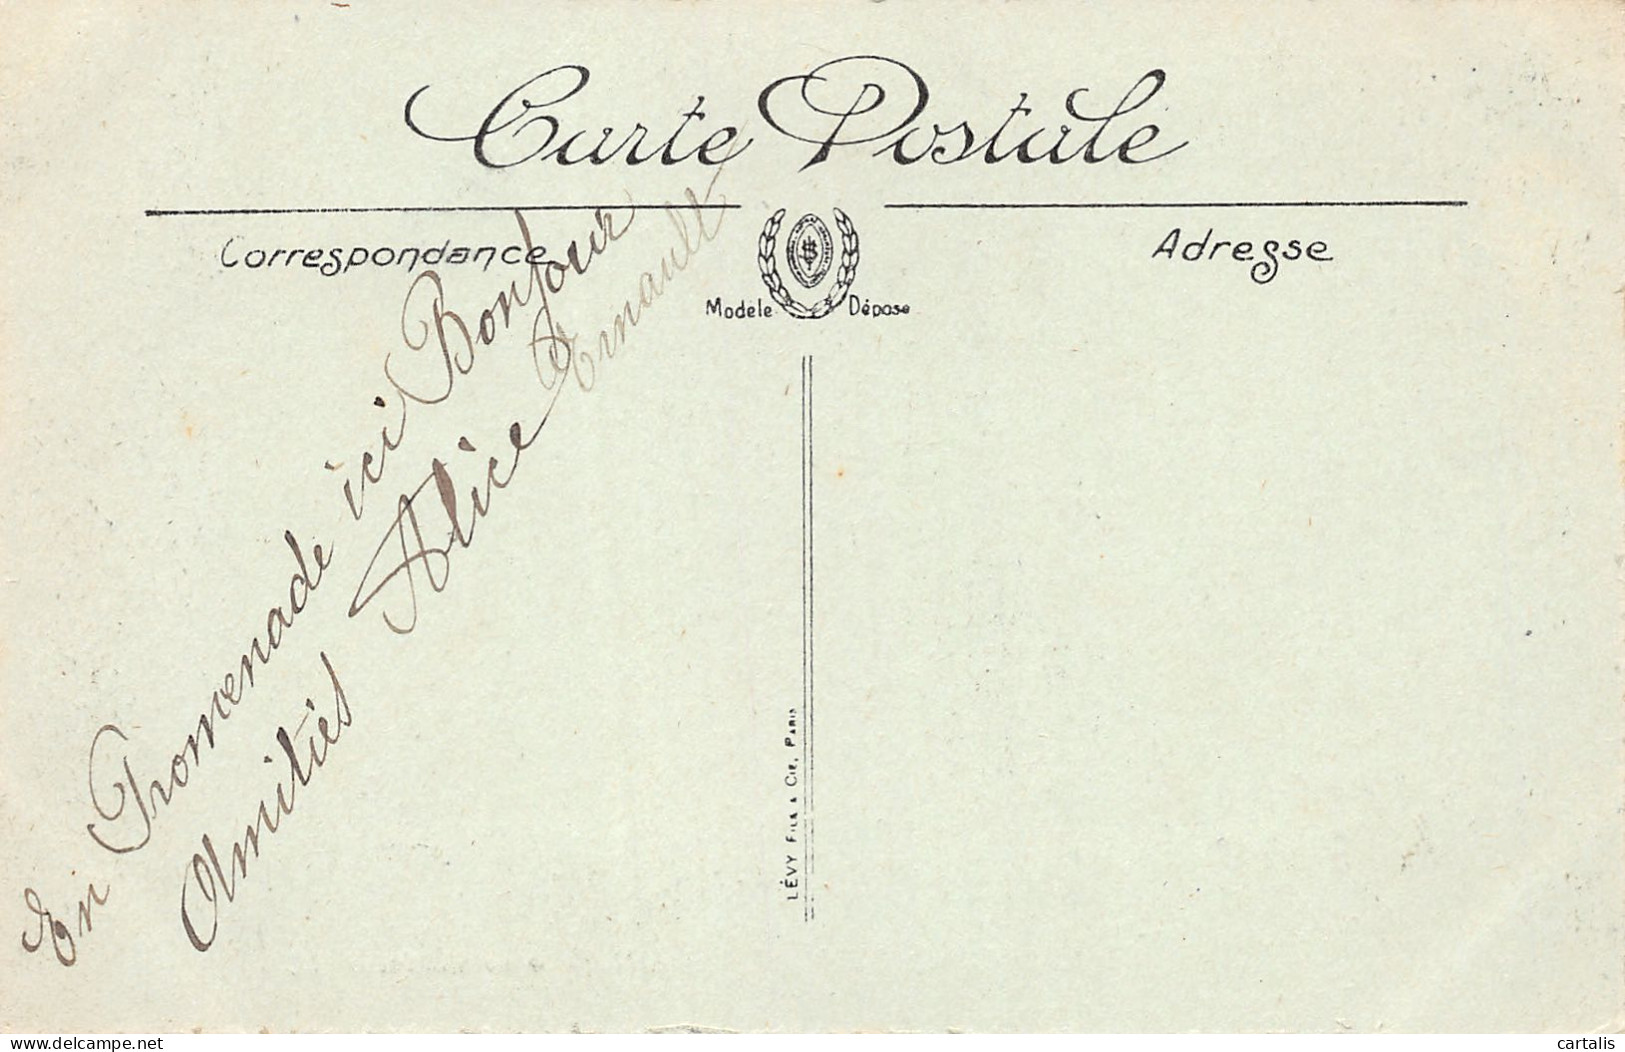 Carte Postale
Correspondance
Adresse
Modèle Déposé
En Promenade ici Bonjour
Amitiés Alice Ernault
LÉVY FILS & CIE, PARIS
www.delcampe.net
cartalis